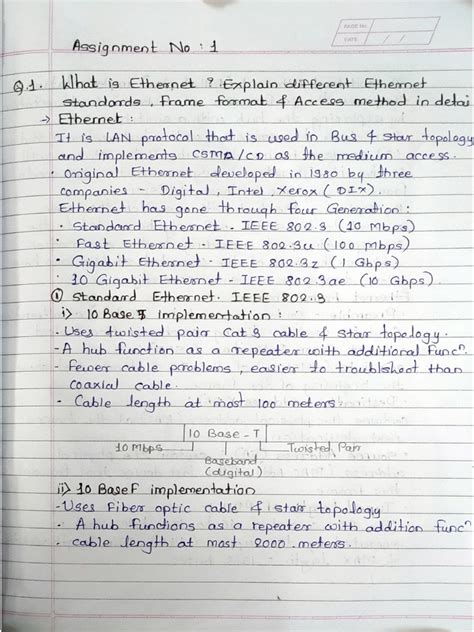 PAGE No.
DATE
Assignment No : 1
Q.1. What is Ethernet ? Explain different Ethernet
standards, frame format & Access method in detai
→ Ethernet :
It is LAN protocol that is used in Bus & Star topology
and implements CSMA/CD as the medium access.
· Original Ethernet developed in 1980 by three
companies - Digital, Intel, Xerox (DIX).
Ethernet has gone through four Generation :
· Standard Ethernet - IEEE 802.3 (10 Mbps)
· Fast Ethernet - IEEE 802.3u (100 mbps)
· Gigabit Ethernet - IEEE 802.3z (1 Gbps)
· 10 Gigabit Ethernet - IEEE 802.3ae (10 Gbps).
① Standard Ethernet. IEEE 802.3
i) 10 Base T implementation :
- Uses twisted pair Cat 3 cable & star topology.
- A hub function as a repeater with additional Funcⁿ.
- Fewer cable problems, easier to troubleshoot than
coaxial cable.
- Cable length at most 100 meters.
10 Base - T
10 Mbps Twisted Pair
Baseband
(digital)
ii) 10 BaseF implementation
- Uses Fiber optic cable & star topology
- A hub functions as a repeater with addition funcⁿ
- cable length at most 2000 meters.